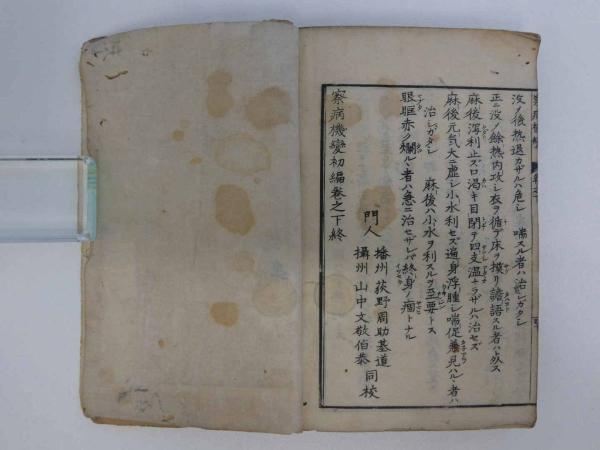 没ノ後熱退カザルハ危シ 喘スル者ハ治シガタシ
正ニ没ノ餘熱内攻シ衣ヲ循デ床ヲ摸リ譫語スル者ハ
麻後瀉利止ズ口渇キ目閉テ四支温ナラザルハ治セズ
麻後元気大ニ虚シ小水利セズ遍身浮腫シ喘促 見ハルヽ者ハ
治シガタシ 麻後ハ小水ヲ利スルヲ至要トス
眼眶赤ク爛ルヽ者ハ急ニ治セザレバ終身ノ痼トナル
門人
播州 荻野周助基道
攝州 山中文敬伯泰 同校
察病機變初編卷之下終